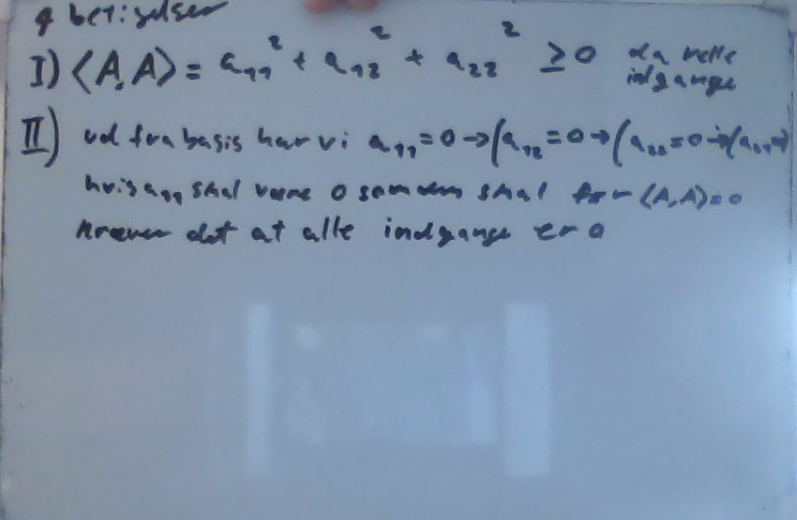 4 betigelser
I) ⟨A,A⟩ = a₁₁² + a₁₂² + a₂₂² ≥ 0 da relle
indgange
II) ud fra basis har vi a₁₁=0→(a₁₂=0→(a₂₂=0→(a₁₁=
hvis a₁₁ skal være 0 som den skal for ⟨A,A⟩=0
kræver det at alle indgange er 0